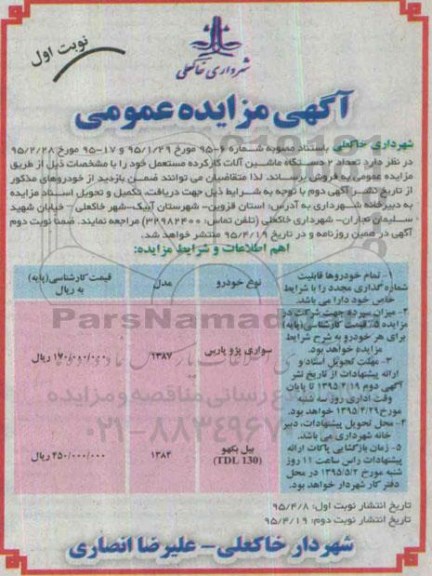 نوبت اول
شهرداری خاکعلی
آگهی مزایده عمومی
شهرداری خاکعلی باستناد مصوبه شماره ۶-۹۵ مورخ ۹۵/۱/۲۹ و ۱۷-۹۵ مورخ ۹۵/۲/۲۸
در نظر دارد تعداد ۲ دستگاه ماشین آلات کارکرده مستعمل خود را با مشخصات ذیل از طریق
مزایده عمومی به فروش برساند. لذا متقاضیان می توانند ضمن بازدید از خودروهای مذکور
از تاریخ نشر آگهی دوم با توجه به شرایط ذیل جهت دریافت، تکمیل و تحویل اسناد مزایده
به دبیرخانه شهرداری به آدرس: استان قزوین- شهرستان آبیک- شهر خاکعلی- خیابان شهید
سلیمان نجاران- شهرداری خاکعلی (تلفن تماس: ۳۲۹۸۲۴۰۰) مراجعه نمایند. ضمنا نوبت دوم
آگهی در همین روزنامه و در تاریخ ۹۵/۴/۱۹ منتشر خواهد شد.
اهم اطلاعات و شرایط مزایده:
۱- تمام خودروها قابلیت
شماره گذاری مجدد را با شرایط
خاص خود دارا می باشد.
۲- میزان سپرده جهت شرکت در
مزایده ۵٪ قیمت کارشناسی (پایه)
برای هر خودرو به شرح شرایط
مزایده خواهد بود.
۳- مهلت تحویل اسناد و
ارائه پیشنهادات از تاریخ نشر
آگهی دوم ۱۳۹۵/۴/۱۹ تا پایان
وقت اداری روز سه شنبه
مورخ ۱۳۹۵/۴/۲۹ خواهد بود.
۴- محل تحویل پیشنهادات، دبیر
خانه شهرداری می باشد.
۵- زمان بازگشایی پاکات ارائه
پیشنهادات راس ساعت ۱۱ روز
شنبه مورخ ۱۳۹۵/۵/۲ در محل
دفتر کار شهردار خواهد بود.
نوع خودرو مدل قیمت کارشناسی(پایه) به ریال
سواری پژو پارس ۱۳۸۷ ۱۷۰/۰۰۰/۰۰۰ ریال
بیل بکهو (TDL 130) ۱۳۸۴ ۴۵۰/۰۰۰/۰۰۰ ریال
ParsNamad
۰۲۱-۸۸۳۴۹۶۷
تاریخ انتشار نوبت اول: ۹۵/۴/۸
تاریخ انتشار نوبت دوم: ۹۵/۴/۱۹
شهردار خاکعلی- علیرضا انصاری